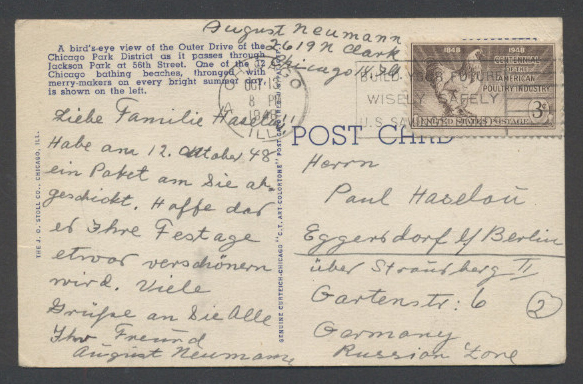 August Neumann
2619 N Clark
Chicago
A bird's-eye view of the Outer Drive of the
Chicago Park District as it passes through
Jackson Park at 56th Street. One of the 32
Chicago bathing beaches, thronged with
merry-makers on every bright summer day,
is shown on the left.
CHICAGO
OCT
8 PM
ILL.
BUILD YOUR FUTURE
WISELY SAFELY
U.S. SAV
1848 1948
CENTENNIAL
AMERICAN
POULTRY INDUSTRY
3¢
UNITED STATES POSTAGE
POST CARD
Liebe Familie Haselau!
Habe am 12. Oktober 48
ein Paket am Sie ab
geschickt. Hoffe das
es Ihre Festage
etwas verschönern
wird. Viele
Grüße an Sie Alle
Ihr Freund
August Neumann
Herrn
Paul Haselau
Eggersdorf b/Berlin
über Strausberg II
Gartenstr. 6
Germany
Russian Zone
2
THE J. O. STOLL CO., CHICAGO, ILL.
GENUINE CURTEICH-CHICAGO "C.T. ART-COLORTONE" POST CARD